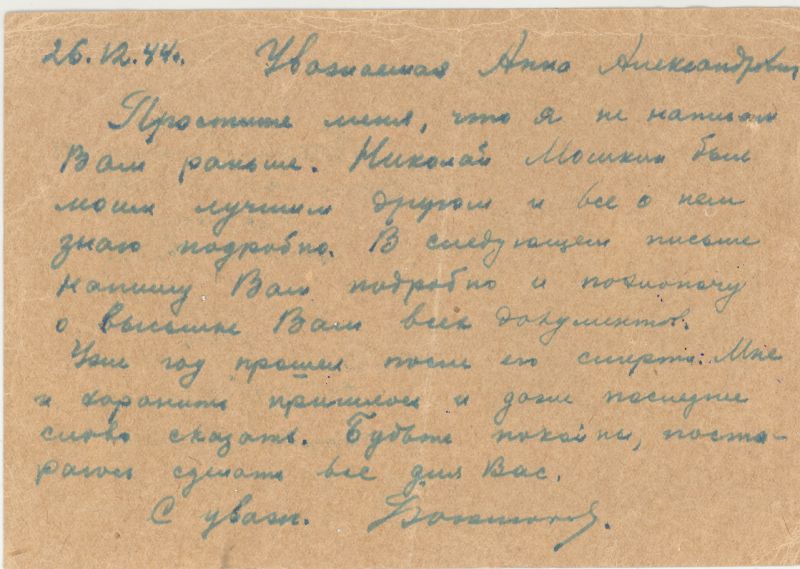 26.12.44г. Уважаемая Анна Александровна
Простите меня, что я не написал
Вам раньше. Николай Мошкин был
моим лучшим другом и все о нем
знаю подробно. В следующем письме
напишу Вам подробно и похлопочу
о высылке Вам всех документов.
Уже год прошел после его смерти. Мне
и хоронить пришлось и даже последнее
слово сказать. Будьте покойны, поста-
раюсь сделать все для Вас.
С уваж.